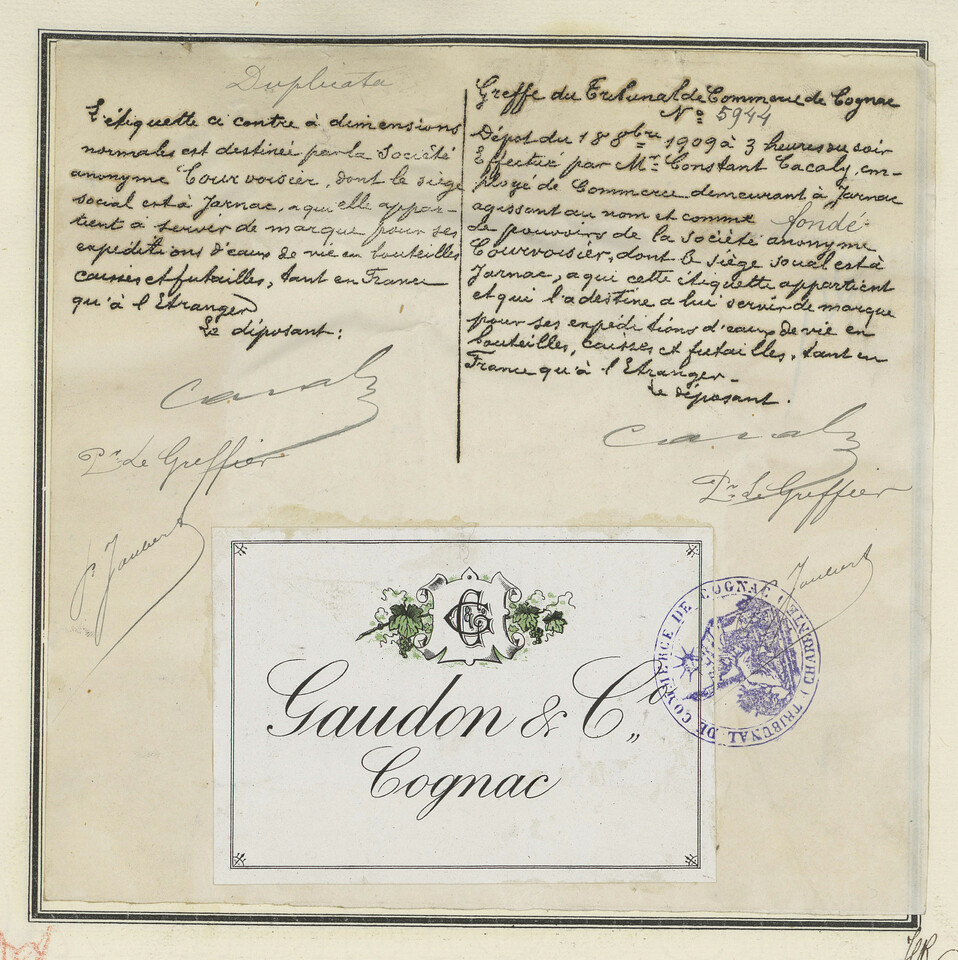 Duplicata
L'étiquette ci contre à dimensions
normales est destinée par la Société
anonyme Courvoisier, dont le siège
social est à Jarnac, a qui elle appar-
tient à servir de marque pour ses
expéditions d'eaux de vie en bouteilles
caisses et futailles, tant en France
qu'à l'Etranger
Le déposant:
Pr. Le Greffier
Greffe du Tribunal de Commerce de Cognac
No. 5944
Dépot du 18 8bre 1909 à 3 heures du soir
Effectué par Mr. Constant Cacaly, em-
ployé de Commerce demeurant à Jarnac
agissant au nom et comme fondé
de pouvoirs de la Société anonyme
Courvoisier, dont le siège social est à
Jarnac, a qui cette étiquette appartient
et qui l'a destine a lui servir de marque
pour ses expéditions d'eaux de vie en
bouteilles, caisses et futailles, tant en
France qu'à l'Etranger-
Le déposant.
Pr. Le Greffier
G & Co
Gaudon & Co,,
Cognac
TRIBUNAL DE COMMERCE DE COGNAC (CHARENTE)